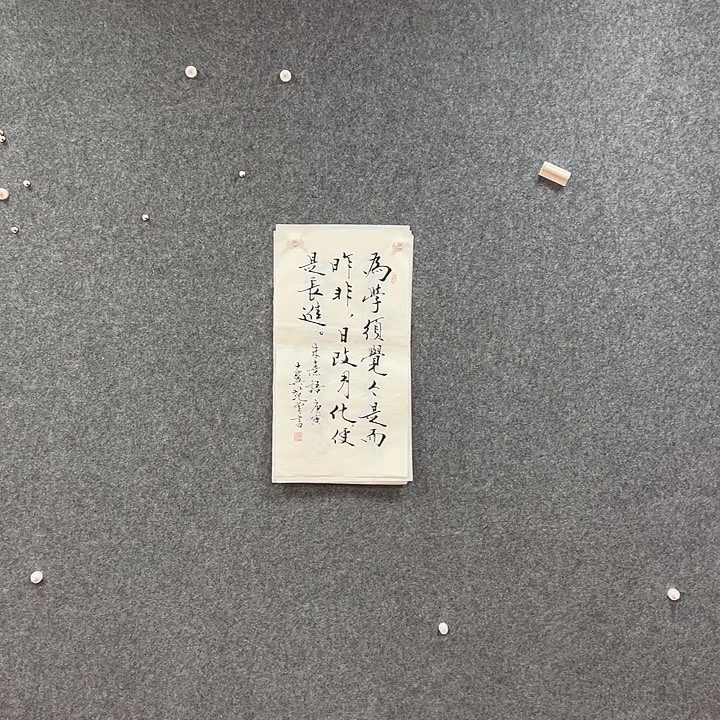 為學須覺今是而
昨非，日改月化便
是長進。
朱熹語 庚
書